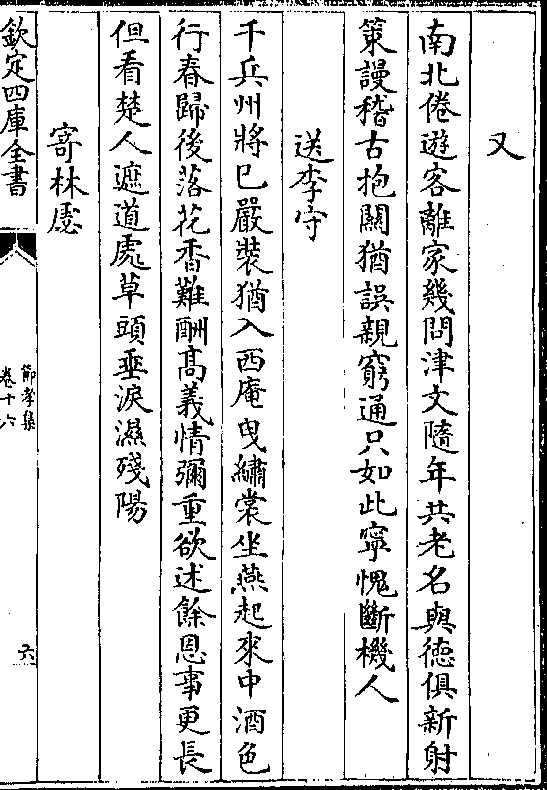 又
南北倦遊客離家幾問津文隨年共老名與德俱新射
策謾稽古抱關猶誤親窮通只如此寧愧斷機人
送李守
千兵州將已嚴裝猶入西庵曳繡裳坐燕起來中酒色
行春歸後落花香難酬髙義情彌重欲述餘恩事更長
但看楚人遮道處草頭垂淚濕殘陽
寄林慶
欽定四庫全書
節孝集
卷十六
六